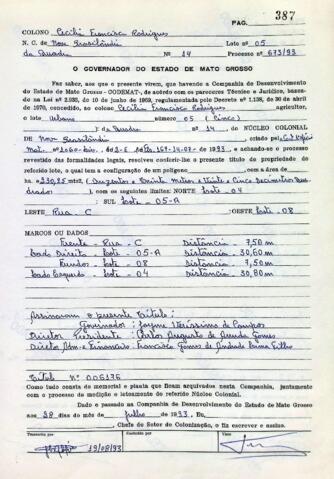 PAG. 387
COLONO Cecilia Francisca Rodrigues
N. C. de Nova Brasilândia Lote nº 05
da Quadra Nº 14 Processo nº 673/93
O GOVERNADOR DO ESTADO DE MATO GROSSO
Faz saber, aos que o presente virem, que havendo a Companhia de Desenvolvimento
do Estado de Mato Grosso - CODEMAT-, de acordo com os pareceres Técnico e Jurídico, basean-
do na Lei nº 2.933, de 10 de junho de 1969, regulamentada pelo Decreto nº 1.138, de 30 de abril
de 1970, concedido, ao colono Cecilia Francisca Rodrigues agricultor,
o lote Urbano número 05 (Cinco)
da Quadra nº 14, DO NÚCLEO COLONIAL
DE Nova Brasilândia, criado pelo
Mat. nº 1.060 1993, e achando-se o processo
revestido das formalidades legais, resolveu conferir-lhe o presente título de propriedade do
referido lote, o qual tem a configuração de um polígono com a área de
ha. 230,25 mts² (Duzentos e Trinta Metros e Vinte e Cinco Decímetros Qua
drados) com os seguintes limites: NORTE Lote - 04
SUL Lote - 05-A
LESTE Rua - C OESTE Lote - 08
MARCOS OU DADOS
Frente - Rua - C Distância - 7,50 m
Lado Direito - Lote - 05-A Distância - 30,60 m
Fundos - Lote - 08 Distância - 7,50 m
Lado Esquerdo - Lote - 04 Distância - 30,80 m
Assinaram o presente Título:
Governador: Jayme Veríssimo de Campos
Diretor Presidente: Carlos Augusto de Arruda Gomes
Diretor Adm. e Financeiro: Francisco Gomes de Andrade Lima Filho
Título Nº 006176
Como tudo consta do memorial e planta que ficam arquivados nesta Companhia, juntamente
com o processo de medição e loteamento do referido Núcleo Colonial.
Dado e passado na Companhia de Desenvolvimento do Estado de Mato Grosso
aos 28 dias do mês de Julho de 1993. Eu,
Chefe do Setor de Colonização, o fiz escrever e assino.
Transcrito por Conferido por Visto
19/08/93